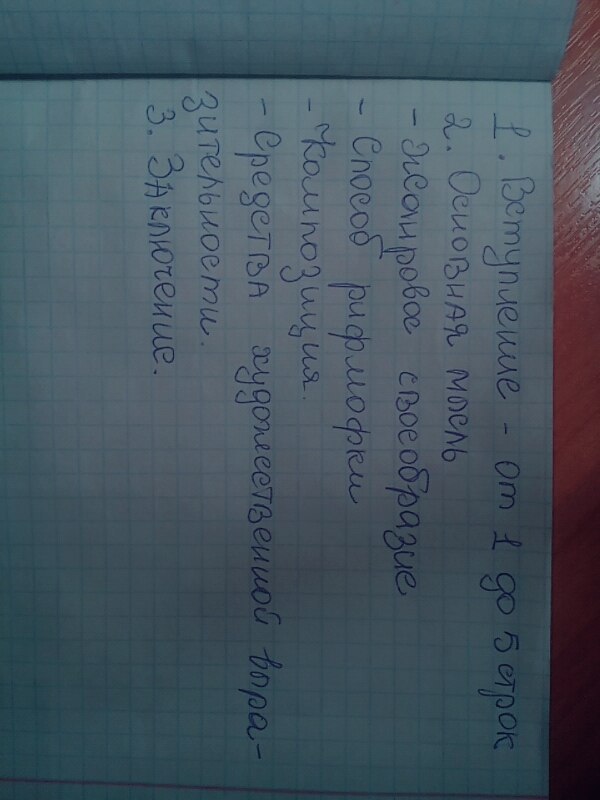 1. Вступление - от 1 до 5 строк
2. Основная мысль
- Жанровое своеобразие
- Способ рифмофки
- Композиция.
- Средства художественной выра-
зительности.
3. Заключение.